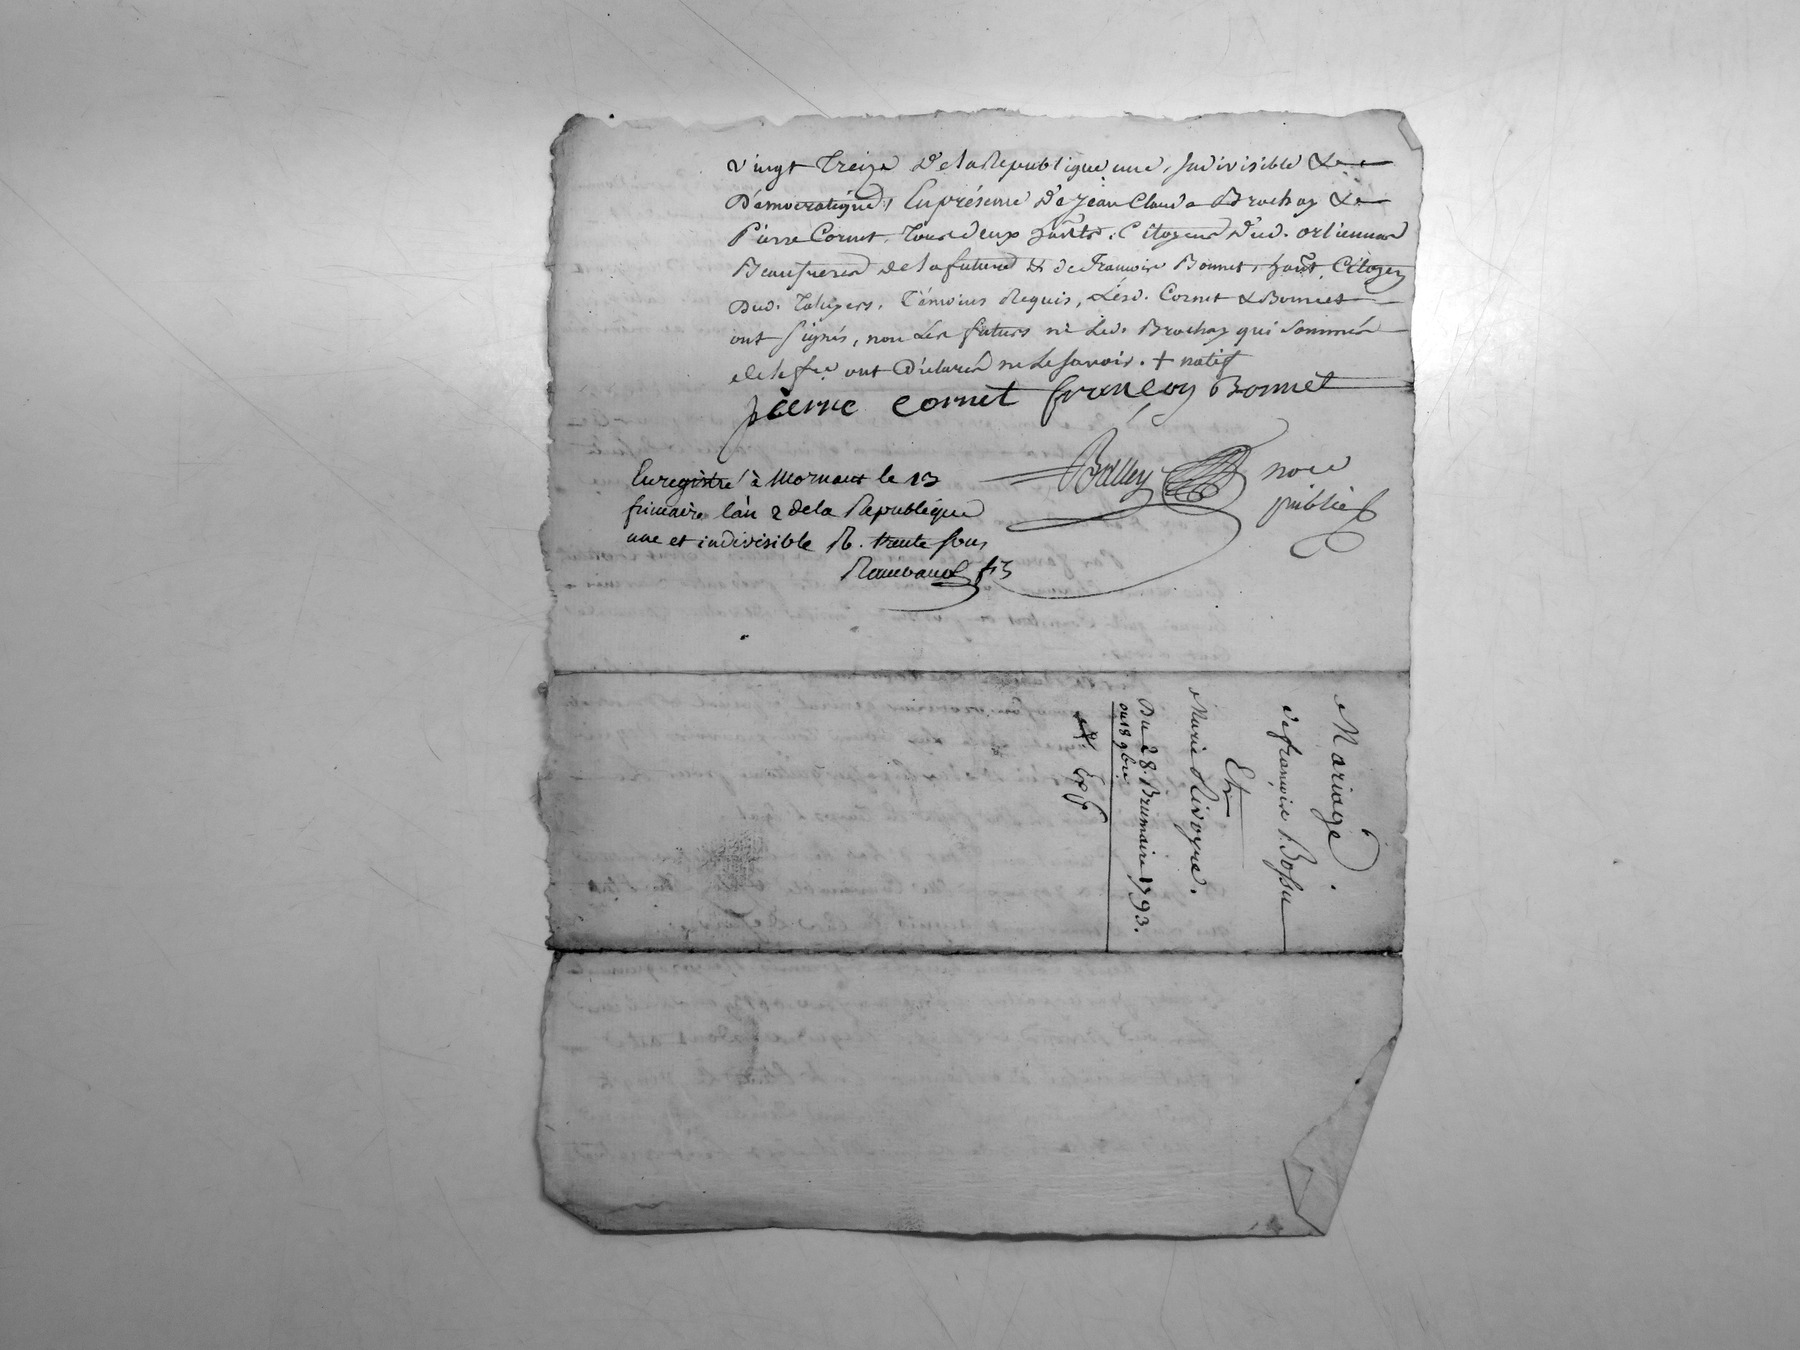 vingt Treize De la Republique une, Indivisible &
Démocratique, En présence De Jean Claude Brochay &
Pierre Cornet, Tous deux habts. Citoyens Dud. orlienas
Beaufreres de la future & de François Bonnet, habt. Citoyen
Dud. Taluyers. Témoins Requis, Lesd. Cornet & Bonnet
ont signés, non Les futurs ni Led. Brochay qui sommés
de le fre. ont Déclarés ne Le savoir. + natif
pierre cornet françoy Bonnet
Enregistré à Mornant le 13
frimaire l'an 2 de la Republique
une et indivisible R. trente sous
Bailley nore
public
Mariage
de françois Bossu
Et
Marie Rivoyre.
Du 28. Brumaire 1793.
ou 18 9bre